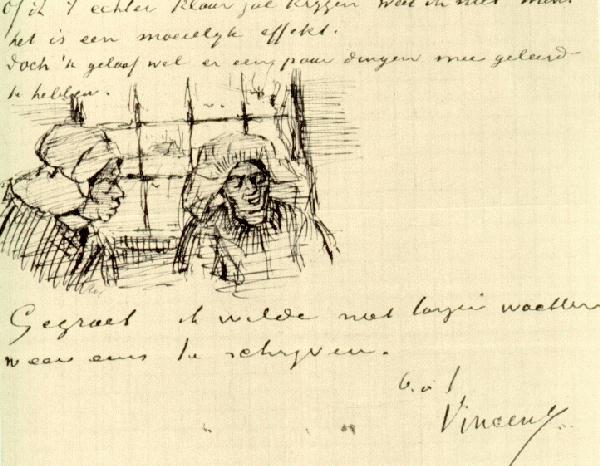 of ik 't echter klaar zal krijgen weet ik niet want
het is een moeielyk effekt.
Doch 'k geloof wel er een paar dingen mee geleerd
te hebben.
Gegroet ik wilde niet langer wachten
weer eens te schryven.
t. à t.
Vincent